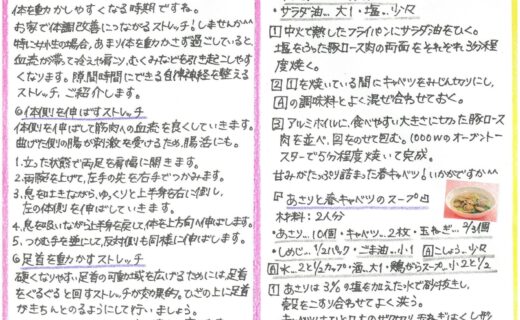 体を動かしやすくなる時期ですね。
お家で体調改善につながるストレッチ!しませんか^^
特に女性の場合、あまり体を動かさず過ごしていると、
血流が滞って冷えや肩こり、むくみなどを引き起こしやす
くなります。隙間時間にできる自律神経を整える
ストレッチ、ご紹介します。
◎体側を伸ばすストレッチ
体側を伸ばして筋肉への血流を良くしていきます。
曲げた側の腸が刺激を受けるため、腸活にも。
1. 立った状態で両足を肩幅に開きます。
2. 両腕を上げて、左手の先を右手でつかみます。
3. 息をはきながら、ゆっくりと上半身を右に倒し、
左の体側を伸ばしていきます。
4. 息を吸いながら上半身を戻して、体を上方向へ伸ばします。
5. つかむ手を逆にして、反対側も同様に伸ばします。
◎足首を動かすストレッチ
硬くなりやすい足首の可動域を広げるためには、足首
をぐるぐると回すストレッチが効果的。ひざの上に足首が
きちんとのるようにして行いましょう。
・サラダ油…大1・塩…少々
1 中火で熱したフライパンにサラダ油をひく。
塩をふった豚ロース肉の両面をそれぞれ3分程
度焼く。
2 1を焼いている間にキャベツをみじん切りにし、
Aの調味料とよく混ぜ合わせておく。
3 アルミホイルに、食べやすい大きさに切った豚ロース
肉を並べ、2をのせて包む。1000Wのオーブントー
スターで5分程度焼いて完成。
甘みがたっぷり詰まった春キャベツ!いかがですか^^
あさりと春キャベツのスープ
材料:2人分
・あさり…10個・キャベツ…2枚・玉ねぎ…2/3個
・しめじ…1/2パック・ごま油…小1 Aこしょう…少々
A水…2と1/2カップ・酒…大1・鶏がらスープ…小2と1/2
1 あさりは3%の塩を加えた水で砂抜きし、
殻をこすり合わせてよく洗う。